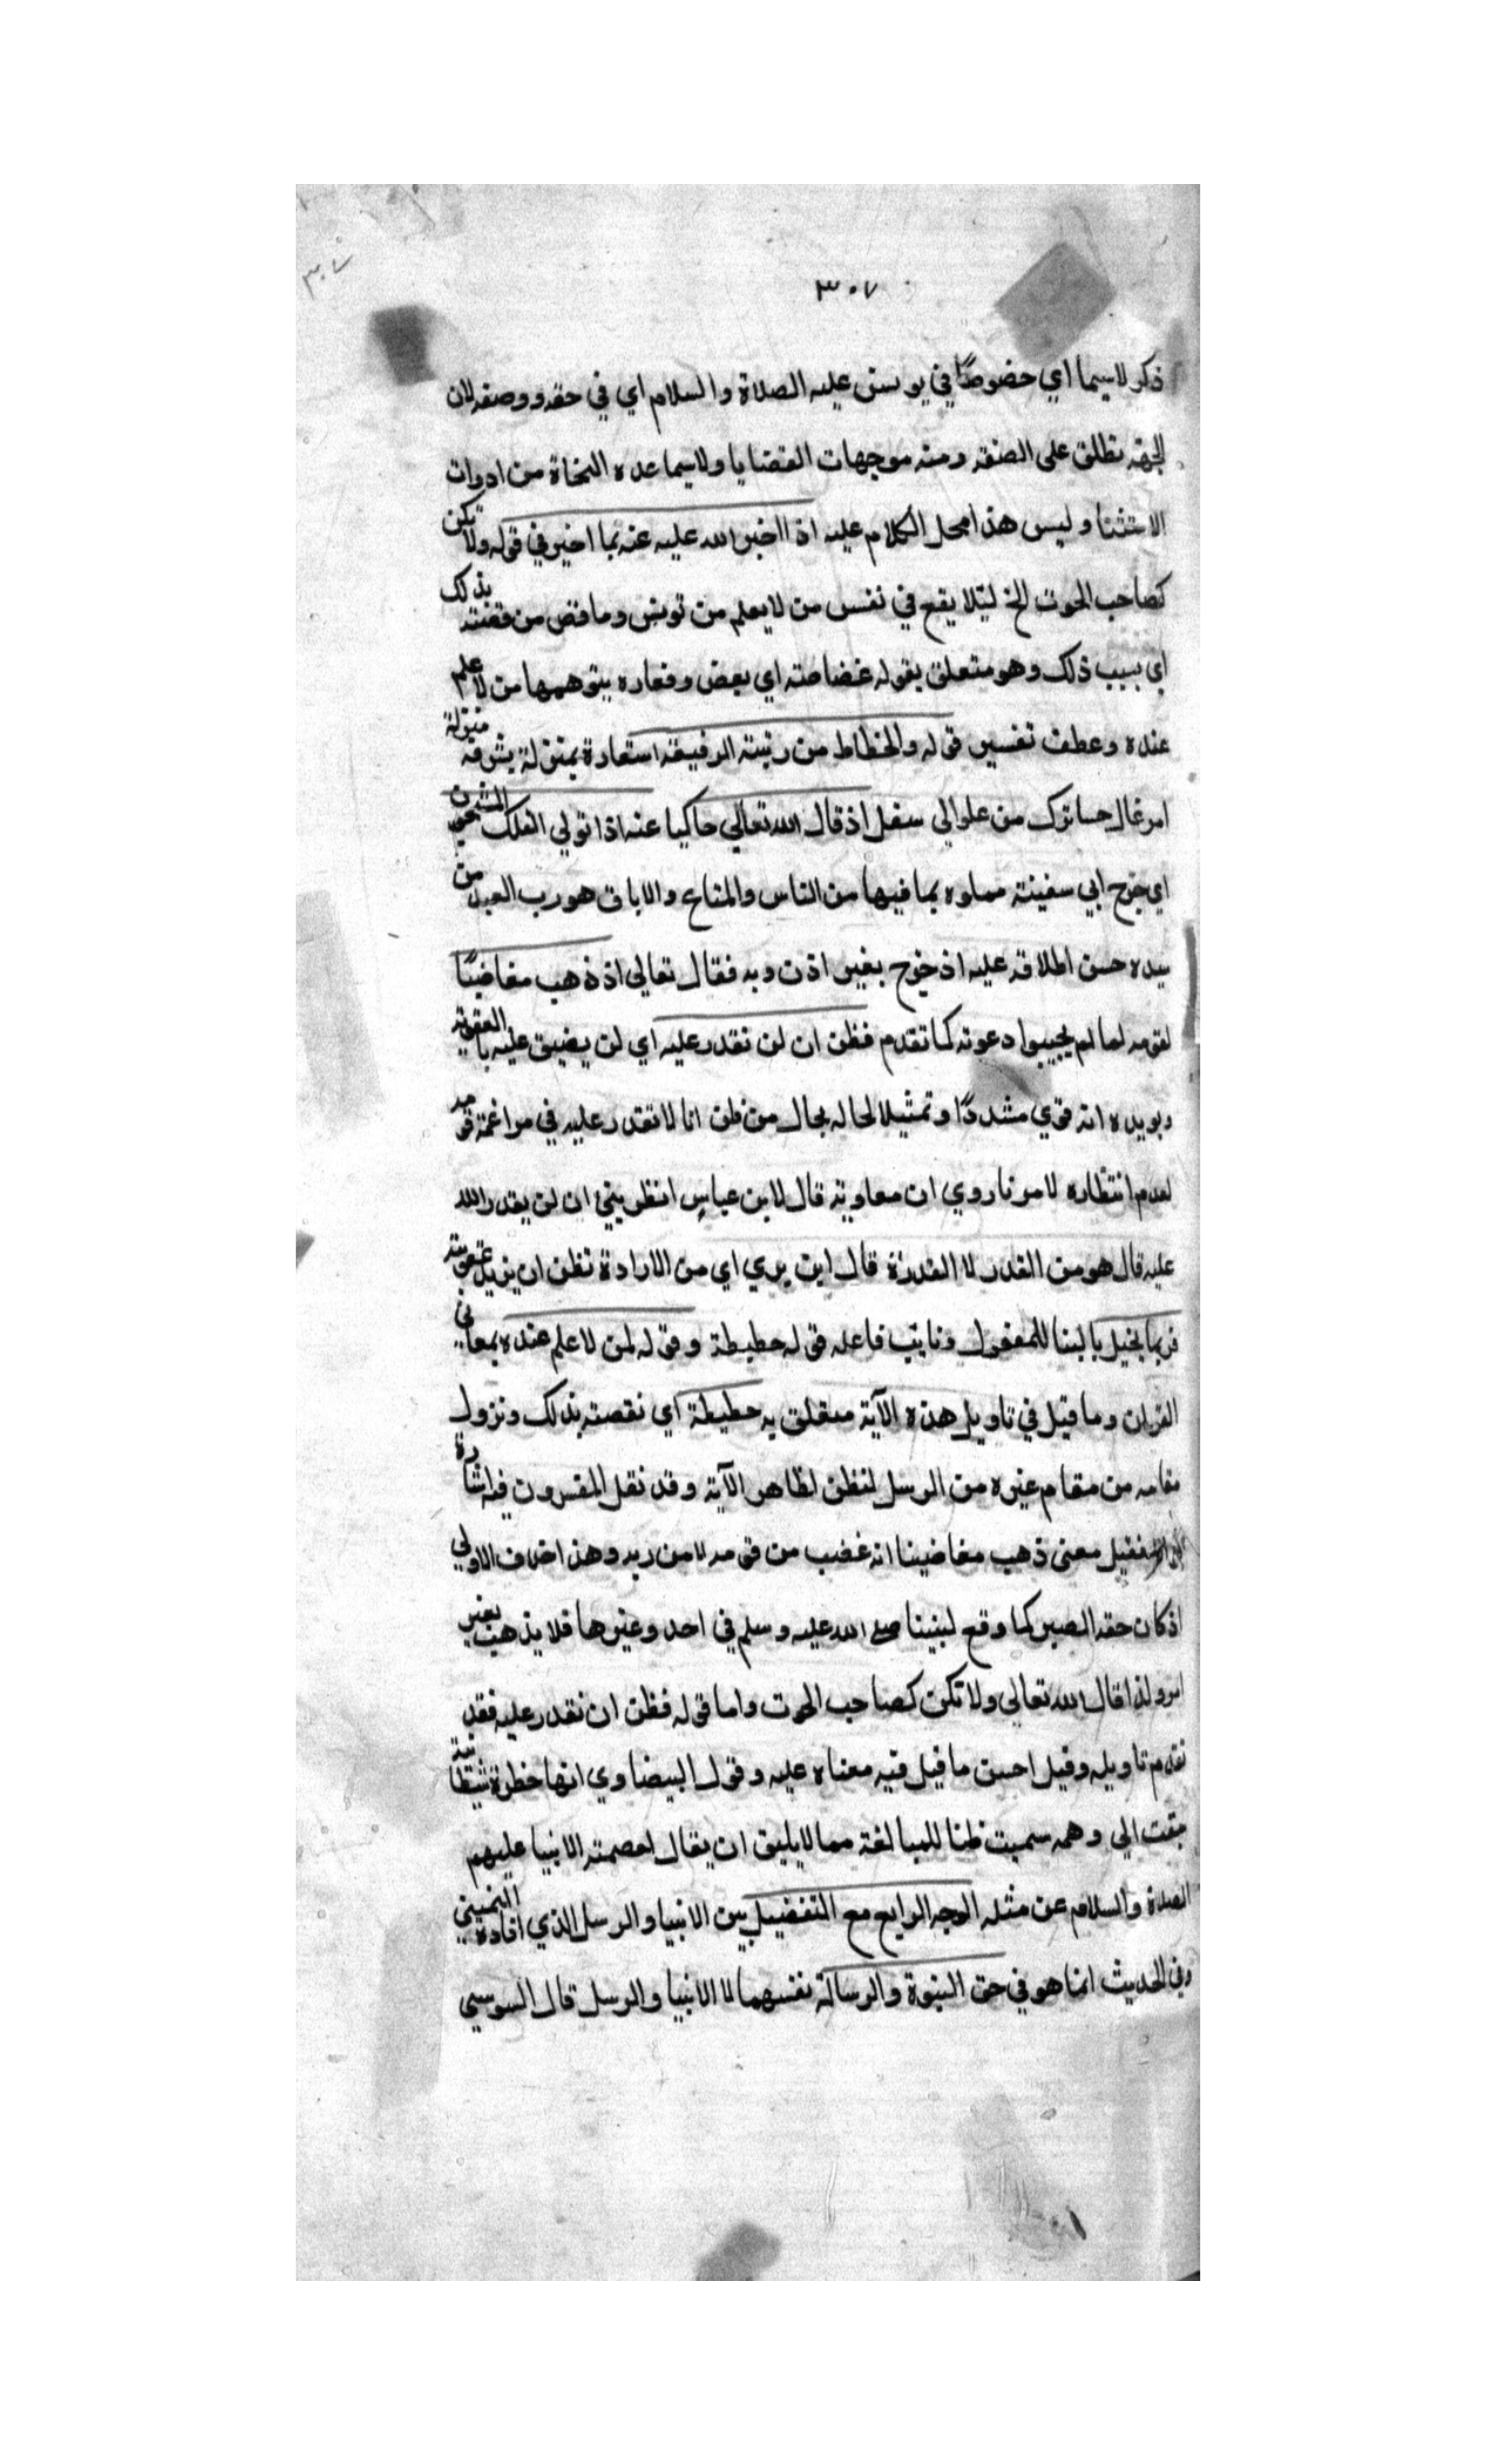 ٣٠٧
٣٠٧
ذكر لاسيما اي خصوصًا في يونس عليه الصلاة والسلام اي في حقه ووصفه لان
الجهة تطلق على الصفة ومنه موجهات القضايا ولاسيما عده النحاة من ادوات
الاستثنا وليس هذا محل الكلام عليه اذا اخبر الله عليه عنه بما اخبر في قوله ولا تكن
كصاحب الحوت الخ ليلا يقع في نفس من لا يعلم من تونس وما قص من قصته بذلك
اي بسبب ذلك وهو متعلق بقوله غضاضته اي بعض وفعاره يتوهمها من لا علم
عنده وعطف تفسير قوله والخطاط من رتبته الرفيعة استعارة بمنزلة بشرفه منزلة
امر عال حسا ترك من علو الى سفل اذ قال الله تعالى حاكيا عنه اذا تولي الفلك المشحون
اي خرج ابي سفينة مملوه بما فيها من الناس والمتاع والاباق هو رب العبد من
سيده حسن اطلاقه عليه اذ خرج بغير اذن وبه فقال تعالى اذ ذهب مغاضبًا
لقومه لما لم يجيبوا دعوته كما تقدم فظن ان لن نقدر عليه اي لن يضيق عليه بالعقوبة
ويويده انه قوي مشددًا وتمثيلا لحاله بحال من ظن انا لا نقدر عليه في مراغمة قومه
لعدم انتظاره لامرنا روي ان معاوية قال لابن عباس انظر يني ان لن يقدر الله
عليه قال هو من القدر لا القدرة قال اين يري اي من الارادة تظن ان يريد عقوبته
فربما يخيل بالبنا للمفعول ونايب فاعله قوله حطيطة وقوله لمن لا علم عنده بمعاني
القران وما قيل في تاويل هذه الآية متعلق به حطيطة اي نقصته بذلك ونزول
مقامه من مقام غيره من الرسل لنظن لظاهر الآية وقد نقل المفسرون فيه اشارة
فقيل معنى ذهب مغاضبنا انه غضب من قومه لا من ربه وهذا خلاف الاولي
اذ كان حقه الصبر كما وقع لنبينا صلى الله عليه وسلم في احد وغيرها فلا يذهب بغير
امر ولذا قال الله تعالى ولا تكن كصاحب الحوت واما قوله فظن ان نقدر عليه فقد
تقدم تاويله وقيل احسن ما قيل فيه معناه عليه وقول البيضاوي انها خطرة شيطانية
سبقت الي وهمه سميت ظنا للمبالغة مما لا يليق ان يقال لعصمته الانبيا عليهم
الصلاة والسلام عن مثله الوجه الرابع مع التفضيل بين الانبيا والرسل الذي افاده النهيني
في الحديث انما هو في حق النبوة والرسالة نفسهما لا الانبيا والرسل قال السوسي